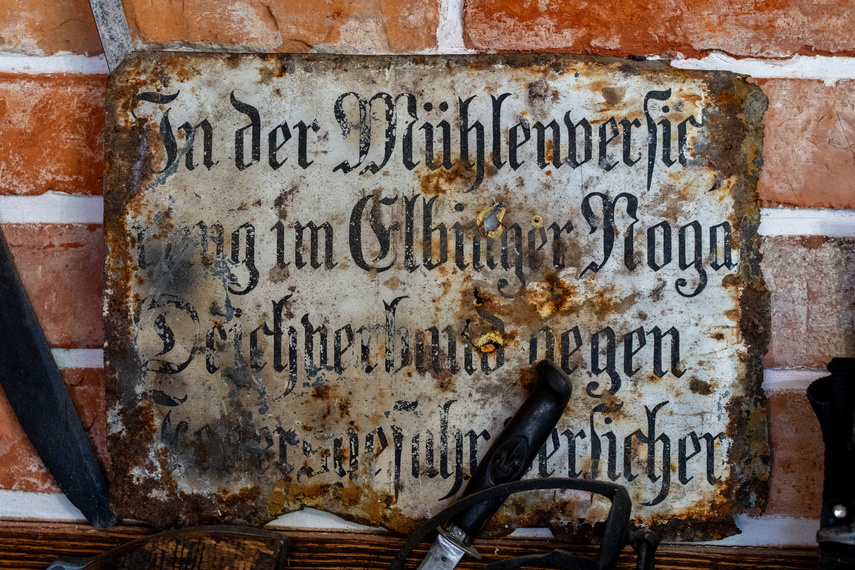 In der Mühlenversich
rung im Elbinger Noga
Deichverband gegen
Feuersgefahr versichert